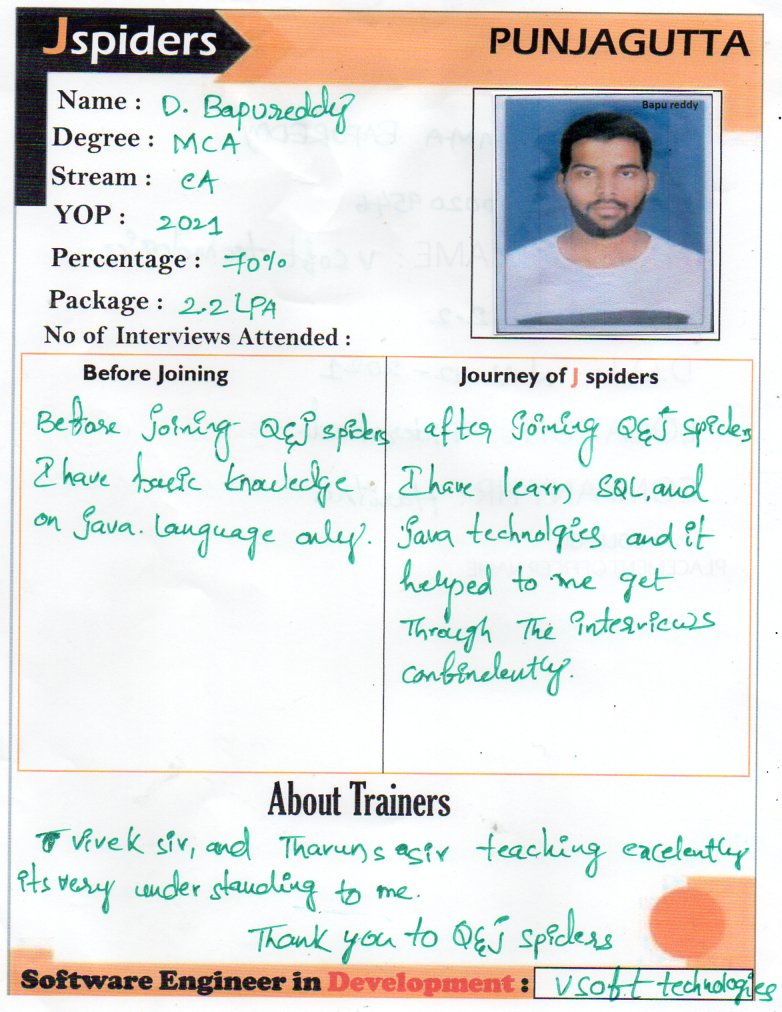 Jspiders PUNJAGUTTA
Name : D. Bapureddy
Bapu reddy
Degree : MCA
Stream : CA
YOP : 2021
Percentage : 70%
Package : 2.2 LPA
No of Interviews Attended :
Before Joining
Before joining Q&J spiders
I have basic knowledge
on java. language only.
Journey of J spiders
after joining Q&J spiders
I have learn SQL, and
java technolgies and it
helped to me get
Through The interviews
confinelently.
About Trainers
Vivek sir, and Tharuns sir teaching excelently
its very understanding to me.
Thank you to Q&J spiders
Software Engineer in Development : Vsoft technologies